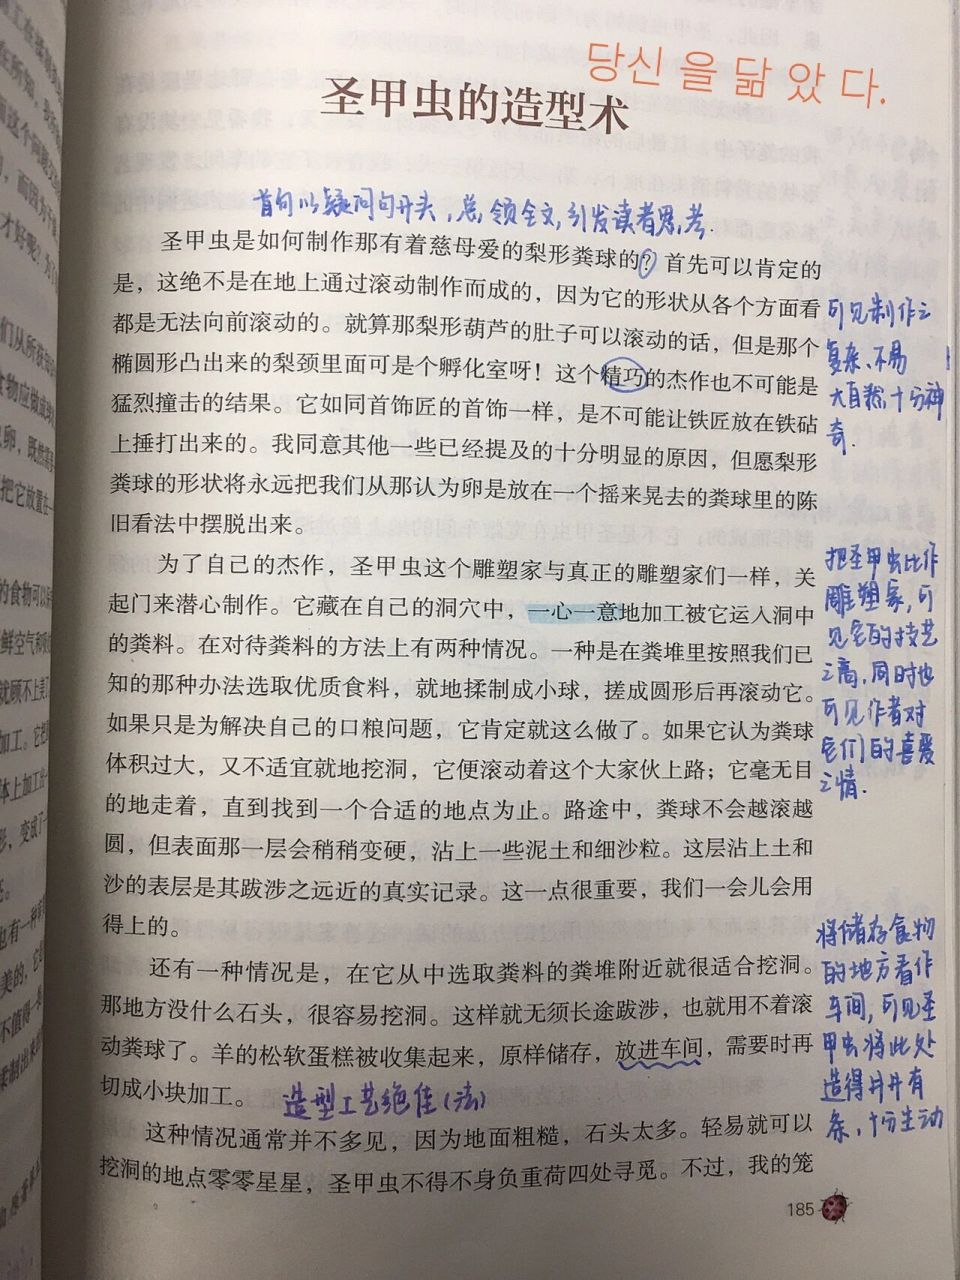 당신 을 닮 았 다.
圣甲虫的造型术
首句以疑问句开头，总领全文，引发读者思考.
圣甲虫是如何制作那有着慈母爱的梨形粪球的？首先可以肯定的
是，这绝不是在地上通过滚动制作而成的，因为它的形状从各个方面看
都是无法向前滚动的。就算那梨形葫芦的肚子可以滚动的话，但是那个
椭圆形凸出来的梨颈里面可是个孵化室呀！这个精巧的杰作也不可能是
猛烈撞击的结果。它如同首饰匠的首饰一样，是不可能让铁匠放在铁砧
上捶打出来的。我同意其他一些已经提及的十分明显的原因，但愿梨形
粪球的形状将永远把我们从那认为卵是放在一个摇来晃去的粪球里的陈
旧看法中摆脱出来。
可见制作之
复杂、不易
大自然十分神
奇.
为了自己的杰作，圣甲虫这个雕塑家与真正的雕塑家们一样，关
起门来潜心制作。它藏在自己的洞穴中，一心一意地加工被它运入洞中
的粪料。在对待粪料的方法上有两种情况。一种是在粪堆里按照我们已
知的那种办法选取优质食料，就地揉制成小球，搓成圆形后再滚动它。
如果只是为解决自己的口粮问题，它肯定就这么做了。如果它认为粪球
体积过大，又不适宜就地挖洞，它便滚动着这个大家伙上路；它毫无目
的地走着，直到找到一个合适的地点为止。路途中，粪球不会越滚越
圆，但表面那一层会稍稍变硬，沾上一些泥土和细沙粒。这层沾上土和
沙的表层是其跋涉之远近的真实记录。这一点很重要，我们一会儿会用
得上的。
把圣甲虫比作
雕塑家，可
见它的技艺
之高，同时也
可见作者对
它们的喜爱
之情.
还有一种情况是，在它从中选取粪料的粪堆附近就很适合挖洞。
那地方没什么石头，很容易挖洞。这样就无须长途跋涉，也就用不着滚
动粪球了。羊的松软蛋糕被收集起来，原样储存，放进车间，需要时再
切成小块加工。
造型工艺绝佳(法)
将储存食物
的地方看作
车间，可见圣
甲虫将此处
造得井井有
条，十分生动
这种情况通常并不多见，因为地面粗糙，石头太多。轻易就可以
挖洞的地点零零星星，圣甲虫不得不身负重荷四处寻觅。不过，我的笼
185